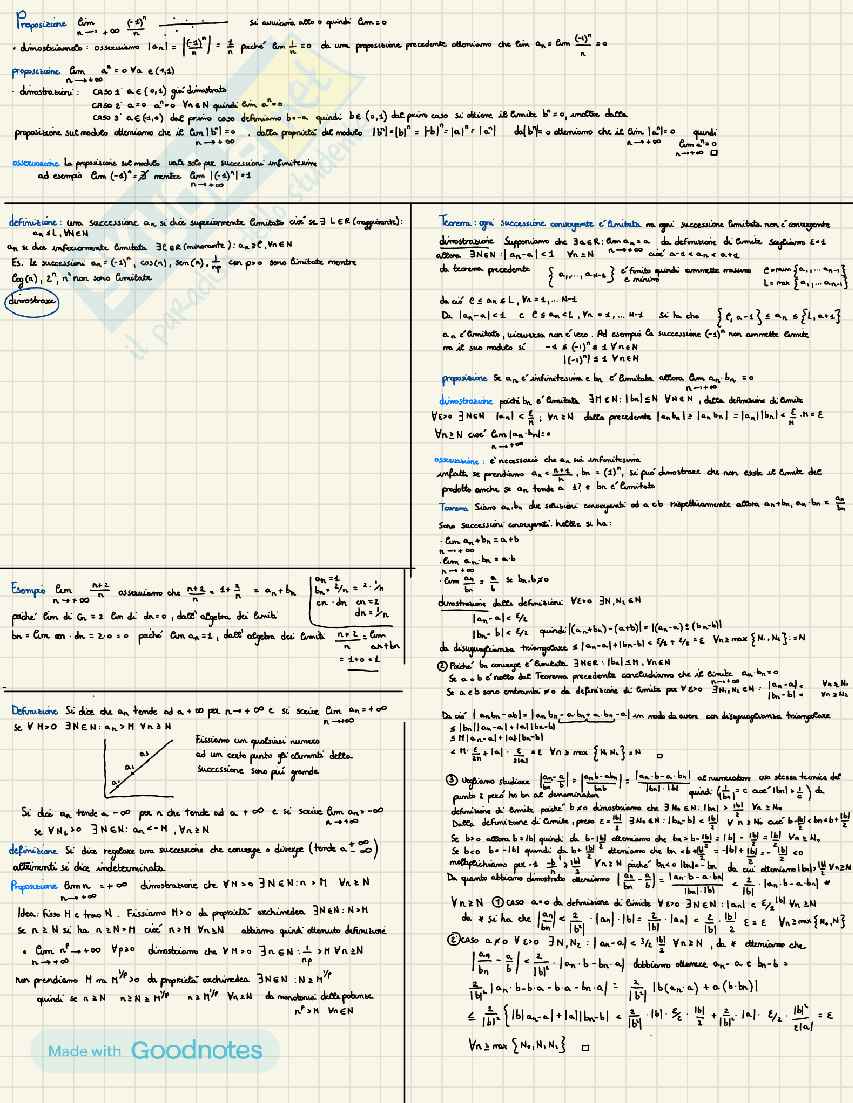 Proposizione lim n→+∞ (-1)^n/n si avvicina alto 0 quindi lim=0
• dimostriamolo: osserviamo |an| = |(-1)^n/n| = 1/n poiché lim 1/n = 0 da una proposizione precedente otteniamo che lim an = lim (-1)^n/n = 0
proposizione lim n→+∞ a^n = 0 ∀a ∈(-1,1)
• dimostrazioni: CASO 1 a∈(0,1) già dimostrato
CASO 2 a=0 a^n=0 ∀n∈N quindi lim a^n=0
CASO 3 a∈(-1,0) dal primo caso definiamo b=-a quindi b∈(0,1) dal primo caso si ottiene il limite b^n=0, inoltre dalla
proposizione sul modulo otteniamo che il lim n→+∞ |b^n|=0 . dalla proprietà del modulo |b^n|=|b|^n = |-b|^n=|a|^n=|a^n| da|b^n|=0 otteniamo che il lim n→+∞ |a^n|=0 quindi
lim n→+∞ a^n=0 □
osservazione La proposizione sul modulo vale solo per successioni infinitesime
ad esempio lim (-1)^n=∄ mentre lim n→+∞ |(-1)^n|=1
definizione: una successione an si dice superiormente limitata cioè se ∃ L∈R (maggiorante):
an≤L, ∀n∈N
an si dice inferiormente limitata ∃ℓ∈R (minorante): an≥ℓ, ∀n∈N
Es. le successioni an=(-1)^n, cos(n), sen(n), 1/n^p con p>0 sono limitate mentre
log(n), 2^n, n^n non sono limitate
dimostrare
Esempio lim n→+∞ (n+2)/n osserviamo che (n+2)/n = 1+2/n = an+bn
an=1
bn=2/n = 2·1/n
cn·dn cn=2
dn=1/n
poiché lim di Cn=2 lim di dn=0, dall'algebra dei limiti
bn=lim cn·dn=2·0=0 poiché lim an=1, dall'algebra dei limiti (n+2)/n = lim an+bn
=1+0=1
Definizione Si dice che an tende ad a +∞ per n→+∞ e si scrive lim n→+∞ an=+∞
se ∀M>0 ∃N∈N: an>M ∀n≥N
Fissiamo un qualsiasi numero
ad un certo punto gli elementi della
successione sono più grande
Si dici an tende a -∞ per n che tende ad a +∞ e si scrive lim n→+∞ an=-∞
se ∀M>0 ∃N∈N: an<-M, ∀n≥N
definizione Si dice regolare una successione che converge o diverge (tende a +∞ o -∞)
altrimenti si dice indeterminata
Proposizione lim n→+∞ n = +∞ dimostrazione che ∀M>0 ∃N∈N: n>M ∀n≥N
Idea: Fisso M e trovo N. Fissiamo M>0 da proprietà archimedea ∃N∈N: N>M
se n≥N si ha n≥N>M cioè n>M ∀n≥N abbiamo quindi ottenuto definizione
• lim n→+∞ n^p→+∞ ∀p>0 dimostriamo che ∀M>0 ∃N∈N: n^p>M ∀n≥N
non prendiamo M ma M^1/p>0 da proprietà archimedea ∃N∈N: N≥M^1/p
quindi se n≥N n≥N≥M^1/p n≥M^1/p ∀n≥N da monotonia della potenza
n^p>M ∀n∈N
Made with Goodnotes
Teorema: ogni successione convergente è limitata ma ogni successione limitata non è convergente
dimostrazione Supponiamo che ∃a∈R: lim n→+∞ an=a da definizione di limite scegliamo ε=1
allora ∃N∈N: |an-a|<1 ∀n≥N cioè a-1<an<a+1
da teorema precedente {a1,...,aN-1} è finito quindi ammette massimo e minimo ℓ=min{a1,...aN-1} L=max{a1,...aN-1}
da ciò ℓ≤an≤L, ∀n=1,...N-1
Da |an-a|<1 e ℓ≤an<L, ∀n=1,...N-1 si ha che {ℓ,a-1}≤an≤{L,a+1}
an è limitato, viceversa non è vero. Ad esempio la successione (-1)^n non ammette limite
ma il suo modulo sì -1≤(-1)^n≤1 ∀n∈N
|(-1)^n|≤1 ∀n∈N
proposizione Se an è infinitesima e bn è limitata allora lim n→+∞ an·bn=0
dimostrazione poiché bn è limitata ∃M∈N: |bn|≤N ∀n∈N, dalla definizione di limite
∀ε>0 ∃N∈N |an|<ε/M; ∀n≥N dalla precedente |anbn|≥|anbn|=|an||bn|<ε/M·M=ε
∀n≥N cioè lim n→+∞ |an·bn|=0
osservazione: è necessario che an sia infinitesima
infatti se prendiamo an=(n+1)/n, bn=(1)^n, si può dimostrare che non esiste il limite del
prodotto anche se an tende a 1 e bn è limitata
Teorema Siano an,bn due soluzioni convergenti ad a e b rispettivamente allora an+bn, an·bn = an/bn
sono successioni convergenti. Inoltre si ha:
·lim n→+∞ an+bn=a+b
·lim n→+∞ an·bn=a·b
·lim an/bn = a/b se bn,b≠0
dimostrazione dalla definizioni ∀ε>0 ∃N1,N2∈N
|an-a|<ε/2
|bn-b|<ε/2 quindi |(an+bn)-(a+b)|=|(an-a)+(bn-b)|
da disuguaglianza triangolare ≤|an-a|+|bn-b|<ε/2+ε/2=ε ∀n≥max{N1,N2}:=N
② Poiché bn converge è limitata ∃M∈R: |bn|≤M, ∀n∈N
Se a=0 è noto dal Teorema precedente concludiamo che il limite n→+∞ an·bn=0
Se a e b sono entrambi ≠0 da definizione di limite per ∀ε>0 ∃N1,N2∈N: |an-a|= ∀n≥N1 |bn-b|= ∀n≥N2
Da ciò |anbn-ab|=|anbn-a·bn+a·bn-ab| in modo da avere con disuguaglianza triangolare
≤|bn||an-a|+|a||bn-b|
≤M|an-a|+|a||bn-b|
<M·ε/2M+|a|·ε/2|a|=ε ∀n≥max{N1,N2}=N □
③ Vogliamo studiare |an/bn-a/b|=|anb-abn/bnb|=|an·b-a·bn|/|bn|·|b| al numeratore uso stessa tecnica del
punto 2 però ho bn al denominatore
definizione di limite poiché b≠0 dimostriamo che ∃N0∈N: |bn|>|b|/2 ∀n≥N0
Dalla definizione di limite, preso ε=|b|/2 ∃N0∈N: |bn-b|<|b|/2 ∀n≥N0 cioè b-|b|/2<bn<b+|b|/2
Se b>0 allora b=|b| quindi da b-|b|/2 otteniamo che bn>b-|b|/2=|b|-|b|/2=|b|/2 ∀n≥N0
Se b<0 b=-|b| quindi da b+|b|/2 otteniamo che bn<b+|b|/2=-|b|+|b|/2=-|b|/2<0
moltiplichiamo per -1 -bn>|b|/2 ∀n≥N poiché bn<0 |bn|=-bn da cui otteniamo |bn|>|b|/2 ∀n≥N
Da quanto abbiamo dimostrato otteniamo |an/bn-a/b|=|an·b-a·bn|/|bn|·|b| < 2/|b|²·|an·b-a·bn| *
∀n≥N ① CASO a=0 da definizione di limite ∀ε>0 ∃N∈N: |an|<ε/2|b| ∀n≥N1
da * si ha che |an/bn|<2/|b|²·|an|·|b|=2/|b|·|an|<2/|b|·|b|/2 ε=ε ∀n≥max{N0,N1}
② CASO a≠0 ∀ε>0 ∃N1,N2: |an-a|<
|an/bn-a/b|<2/|b|²·|an·b-bn·a| dobbiamo ottenere an-a e bn-b=
2/|b|²|an·b-b·a-b·a-bn·a|= 2/|b|²|b(an-a)+a(b-bn)|
≤2/|b|²{|b||an-a|+|a||bn-b|<
∀n≥max{N0,N1,N2} □